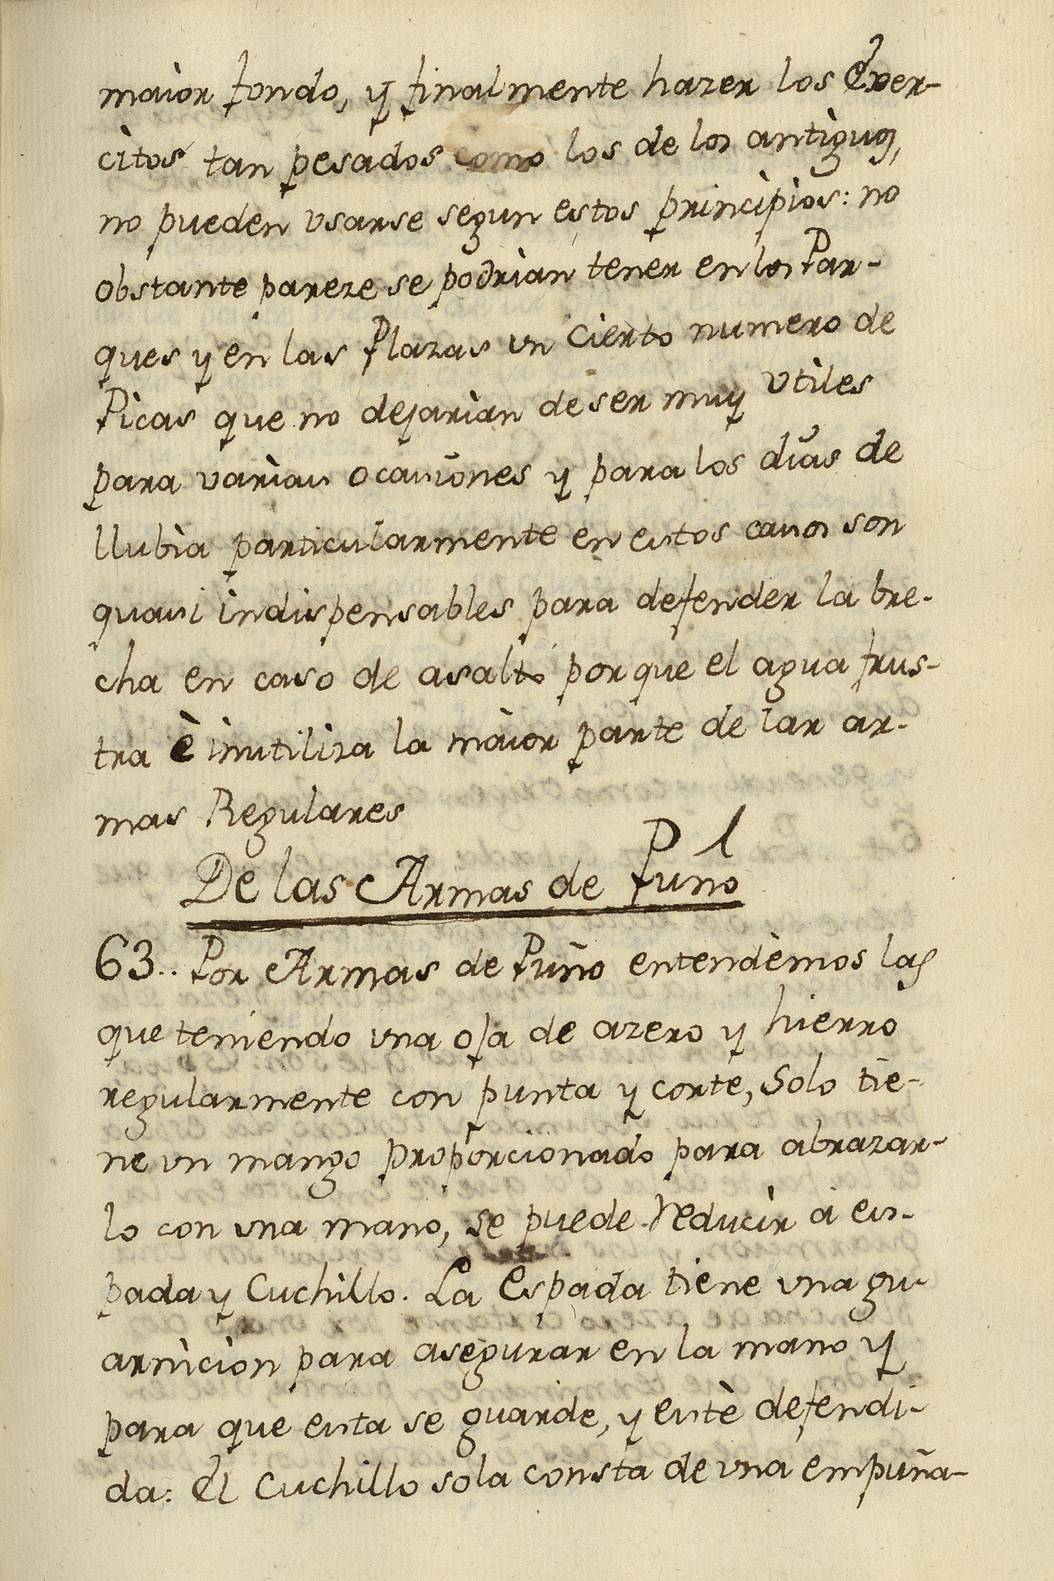 maìor fondo, y finalmente hazer los Exer-
citos tan pesados como los de los antìguos,
no pueden vsarse segun estos prìncìpìos: no
obstante pareze se podrìan tener en los Par-
ques y en las Plazas un Cierto numero de
Picas que no dejarìan de ser muy vtìles
para varìas ocasiones y para los dìas de
llubìa particularmente en estos casos son
quasi indispensables para defender la bre-
cha en caso de asalto porque el agua frus-
tra è inutiliza la maìor parte de las ar-
mas Regulares
De las Armas de Puno
63.. Por Armas de Puño entendèmos las
que teniendo vna oja de azero y hierro
regularmente con punta y corte, Solo tie-
ne vn mango proporcionado para abrazar-
lo con vna mano, se puede Reducìr à es-
pada y Cuchillo. La Espada tiene vna gu-
arnìcìon para asegurar en la mano y
para que esta se guarde, y estè defendi-
da: El Cuchillo sola consta de vna empuña-